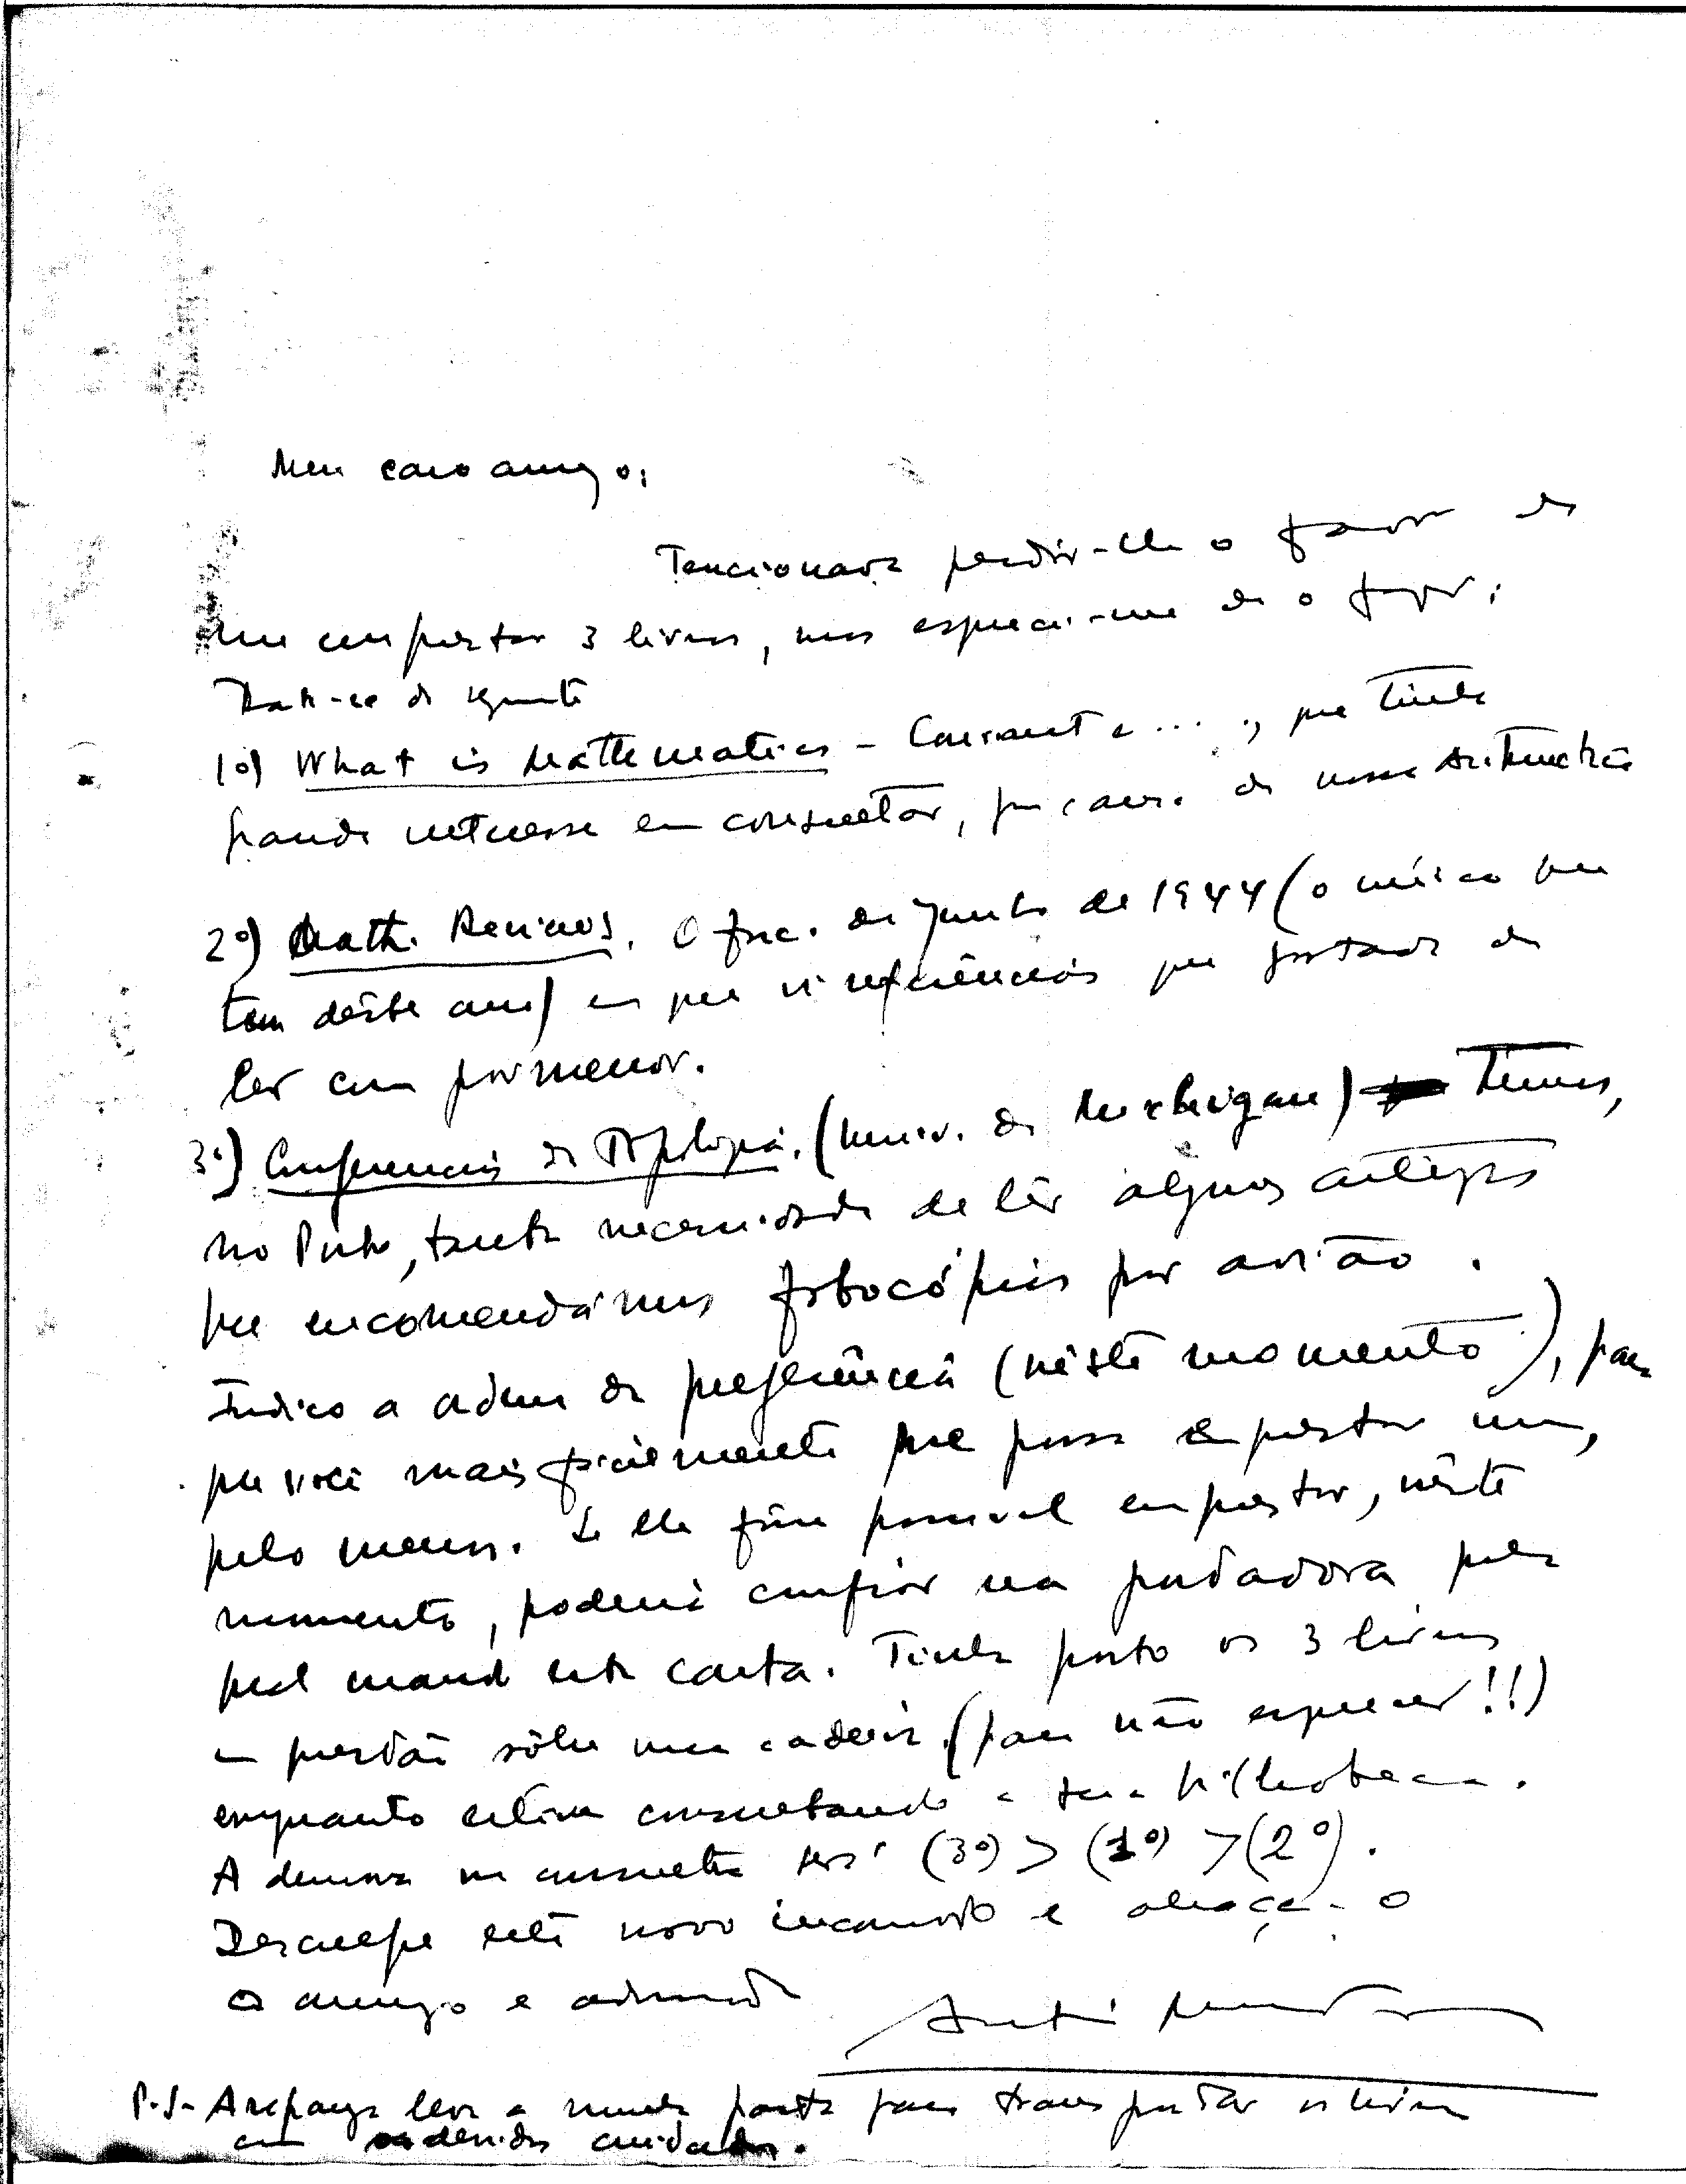 Meu caro amigo:
Tencionava pedir-lhe o favor de
me emprestar 3 livros, mas esqueci-me de o fazer:
Trata-se do seguinte
1º) What is Mathematics - Courant e ... ., que tinha
grande interesse em consultar, por causa da nossa Aritmética
2º) Math. Reviews. O fasc. de Junho de 1944 (o único que
tem dêste ano) em que vi referências que gostava de
ler com pormenor.
3º) Conferencias de Topologia. (Univ. de Michigan) Temos,
no Porto, tanta necessidade de lêr alguns artigos
que encomendámos fotocópias por avião.
Indico a ordem de preferência (nêste momento), para
que você mais facilmente me possa emprestar um,
pelo menos. Se lhe fôr possivel emprestar, nêste
momento, poderá confiar na portadora pela
qual mando esta carta. Tinha posto os 3 livros
em questão sôbre uma cadeira (para não esquecer!!)
enquanto estive consultando a sua bibliotheca.
A demora na consulta será (3º) > (1º) > (2º).
Desculpe este novo incomodo e abraça-o
o amigo e admirador
P.S- A rapariga leva a minha pasta para transportar os livros
com os devidos cuidados.